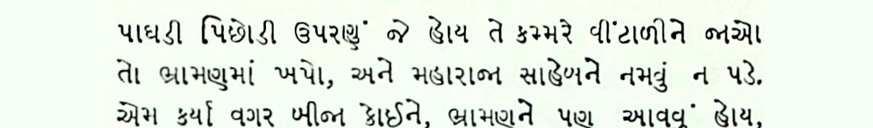 પાઘડી પિછોડી ઉપરણું જે હોય તે કમ્મરે વીંટાળીને જાઓ
તો ભ્રામણમાં ખપો, અને મહારાજા સાહેબને નમવું ન પડે.
એમ કર્યા વગર બીજા કોઈને, ભ્રામણને પણ આવવું હોય,